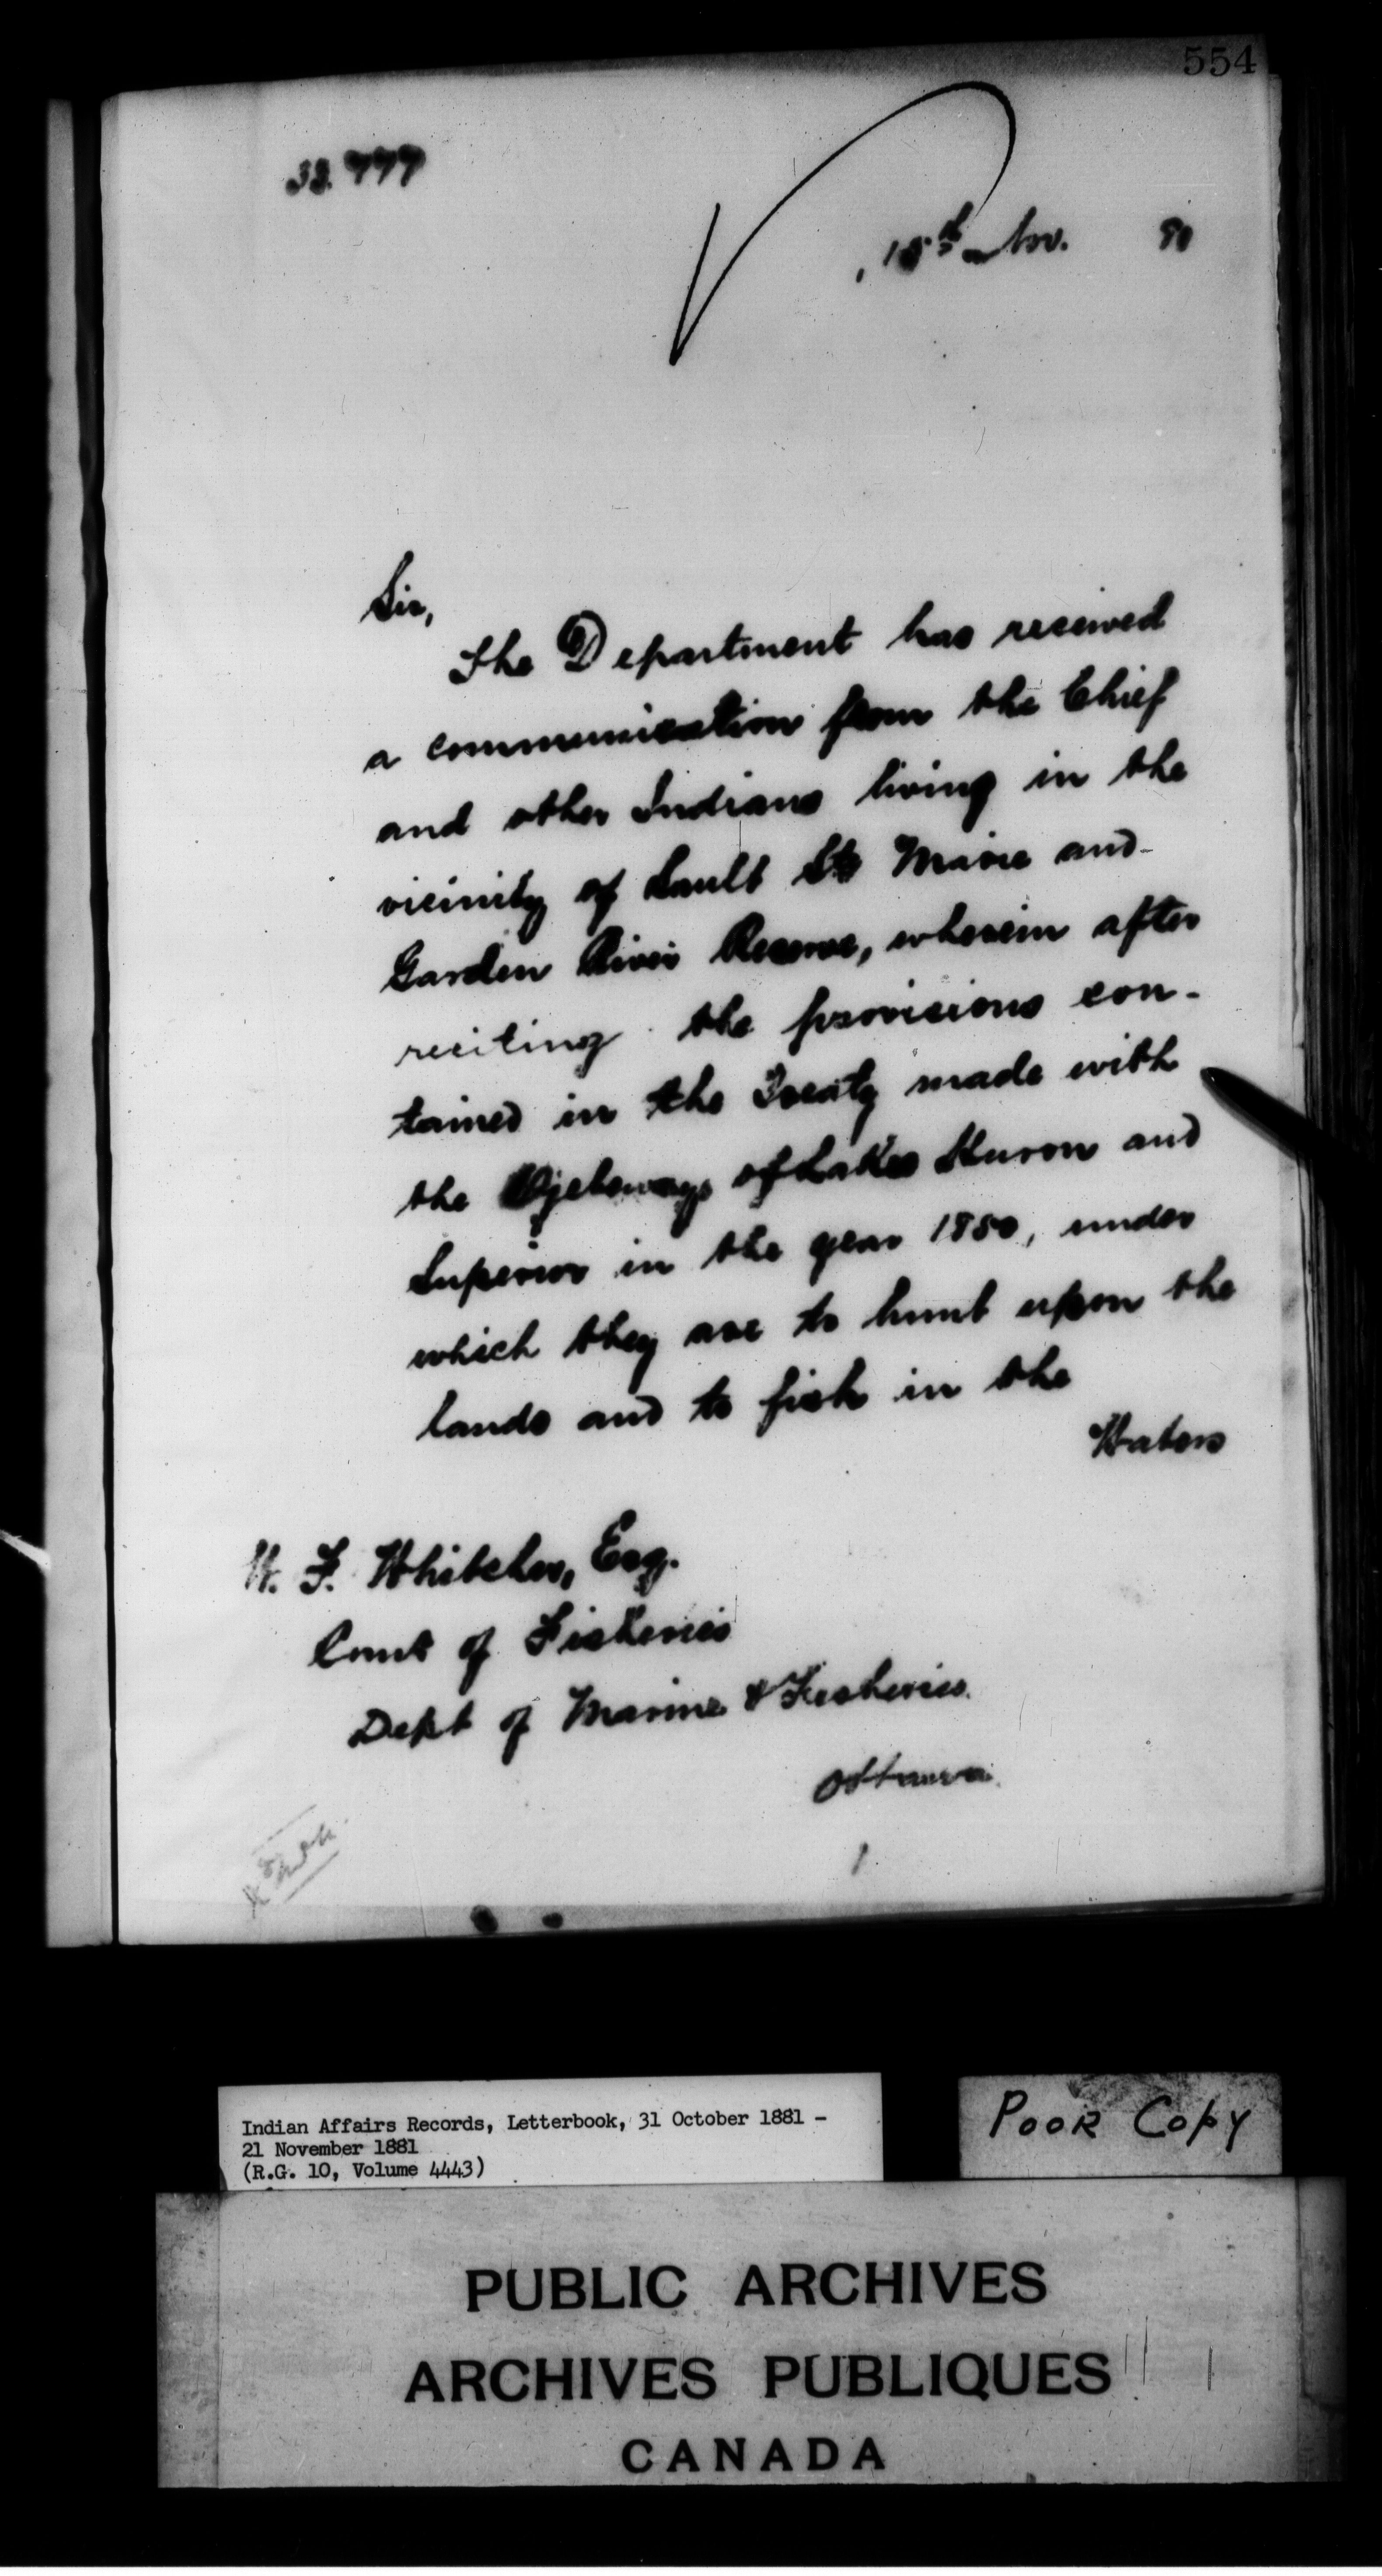 554
33.777
18th Nov. 81
Sir,
The Department has received
a communication from the Chief
and other Indians living in the
vicinity of Sault Ste Marie and
Garden River Reserve, wherein after
reciting the provisions con-
tained in the Treaty made with
the Ojebeways of Lakes Huron and
Superior in the year 1850, under
which they are to hunt upon the
lands and to fish in the
Waters
W. F. Whitcher, Esq.
Comr of Fisheries
Dept of Marine & Fisheries.
Ottawa.
Indian Affairs Records, Letterbook, 31 October 1881 -
21 November 1881
(R.G. 10, Volume 4443)
POOR COPY
PUBLIC ARCHIVES
ARCHIVES PUBLIQUES
CANADA